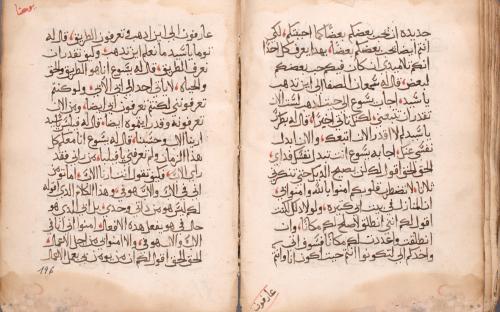 جديده ان يحب بعضكم بعضا كما احببتكم لكي
انتم ايضا يحب بعضكم بعضا بهذا يعرف كل احد
انكم تلاميذي ان كان فيكم حب بعضكم
لبعض قال له شمعان الصفا الى اين تذهب
يا سيد اجاب يسوع الى حيث اذهب لست الان
تقدر ان تتبعني ولكن تاتي اخيرا قال له بطرس
يا سيد لم لا اقدر الان اتبعك والان ابدل
نفسي عنك اجابه يسوع انت تبدل نفسك فداي
الحق الحق اقول لك لن يصيح الديك حتى تنكرني
ثلاثا لا تضطرب قلوبكم امنوا بالله وامنوا بي
ان المنازل في بيت ابي كثيره ولولا ذلك لكنت
اقول لكم انني انطلق لاصلح لكم مكانا وان
انطلقت واعددت لكم مكانا فسوف اتي
واخذكم الي لتكونوا انتم حيث اكون انا وانتم
عارفون
يوحنا
عارفون الى اين اذهب وتعرفون الطريق قال له
توما يا سيد ما نعلم اين تذهب وكيف نقدر ان
نعرف الطريق قال له يسوع انا هو الطريق والحق
والحياه لا ياتي احد الى ابي الا بي ولو كنتم
تعرفوني لكنتم تعرفون ابي ايضا ومن الان
تعرفونه وقد رايتموه قال له فيلبس يا سيد
ارنا الاب وحسبنا قال له يسوع انا معكم كل
هذا الزمان ولم تعرفني يا فيلبس من راني فقد
راى الاب فكيف تقول انت ارنا الاب اما تومن
اني في الاب والاب هو في وهذا الكلام الذي اقوله
لكم ليس هو من ذاتي وحدي بل ابي الذي هو
حال في هو يفعل هذه الافعال امنوا بي اني انا في
الاب والاب هو في والا امنوا بي من اجل الاعمال
الحق الحق اقول لكم ان من يومن بي يعمل الاعمال
196